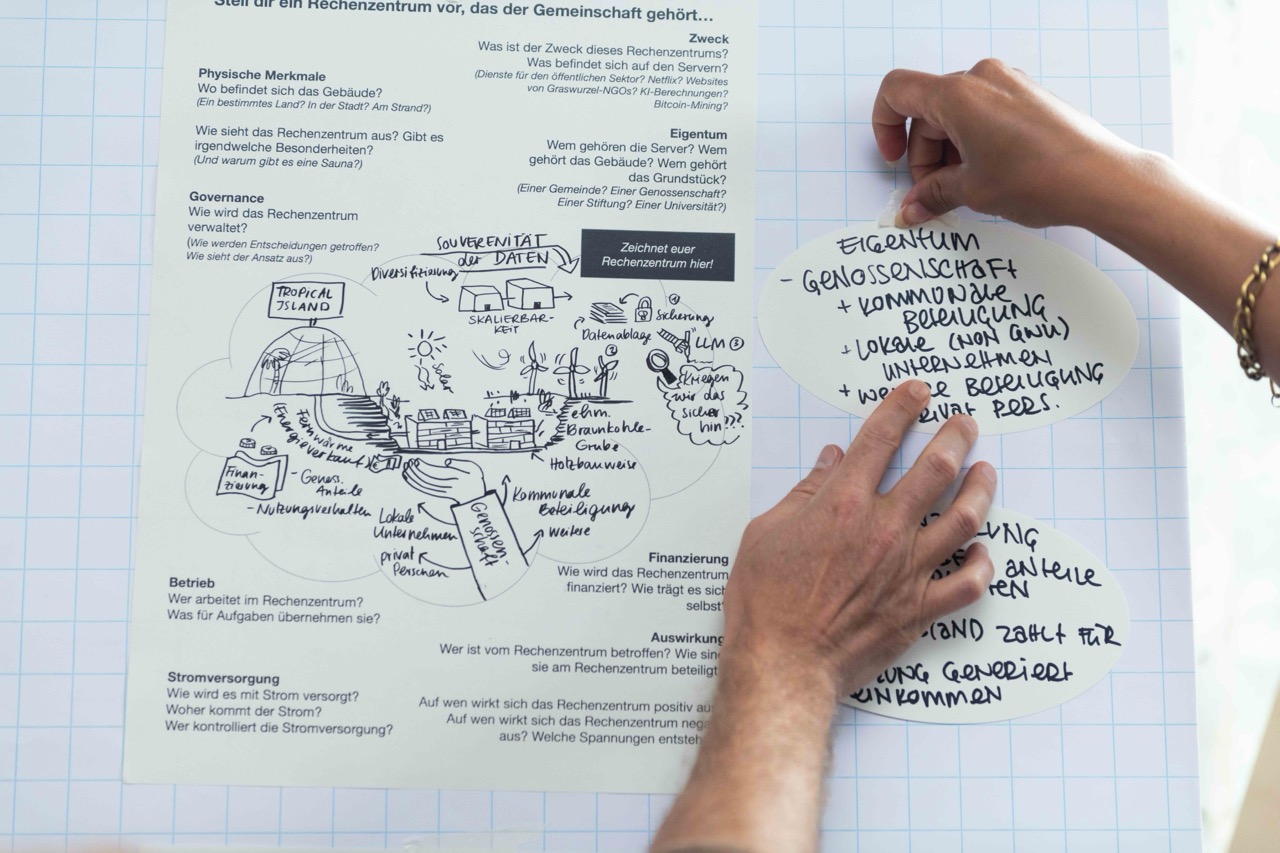 Stell dir ein Rechenzentrum vor, das der Gemeinschaft gehört…
Zweck
Was ist der Zweck dieses Rechenzentrums?
Was befindet sich auf den Servern?
(Dienste für den öffentlichen Sektor? Netflix? Websites
von Graswurzel-NGOs? KI-Berechnungen?
Bitcoin-Mining?
Physische Merkmale
Wo befindet sich das Gebäude?
(Ein bestimmtes Land? In der Stadt? Am Strand?)
Wie sieht das Rechenzentrum aus? Gibt es
irgendwelche Besonderheiten?
(Und warum gibt es eine Sauna?)
Eigentum
Wem gehören die Server? Wem
gehört das Gebäude? Wem gehört
das Grundstück?
(Einer Gemeinde? Einer Genossenschaft?
Einer Stiftung? Einer Universität?)
Governance
Wie wird das Rechenzentrum
verwaltet?
(Wie werden Entscheidungen getroffen?
Wie sieht der Ansatz aus?)
Zeichnet euer
Rechenzentrum hier!
SOUVERENITÄT
der DATEN
Diversifizierung
SKALIERBAR-
KEIT
TROPICAL
ISLAND
Solar
Datenablage
① Sicherung
②
LLM ③
Kriegen
wir das
sicher
hin???
Fernwärme
Energieverkauf
Finan-
zierung
- Genoss.
Anteile
- Nutzungsverhalten
ehm.
Braunkohle-
Grube
Holzbauweise
Kommunale
Beteiligung
Weitere
Lokale
Unternehmen
privat
Personen
Genossen-
schaft
Betrieb
Wer arbeitet im Rechenzentrum?
Was für Aufgaben übernehmen sie?
Stromversorgung
Wie wird es mit Strom versorgt?
Woher kommt der Strom?
Wer kontrolliert die Stromversorgung?
Finanzierung
Wie wird das Rechenzentrum
finanziert? Wie trägt es sich
selbst?
Auswirkung
Wer ist vom Rechenzentrum betroffen? Wie sind
sie am Rechenzentrum beteiligt
Auf wen wirkt sich das Rechenzentrum positiv aus
Auf wen wirkt sich das Rechenzentrum nega
aus? Welche Spannungen entsteh
EIGENTUM
- GENOSSENSCHAFT
+ KOMMUNALE
BETEILIGUNG
+ LOKALE (NON GNU)
UNTERNEHMEN
+ BETEILIGUNG
PRIVAT PERS.
ANTEILE
ZAHLT FÜR
GENERIERT
EINKOMMEN